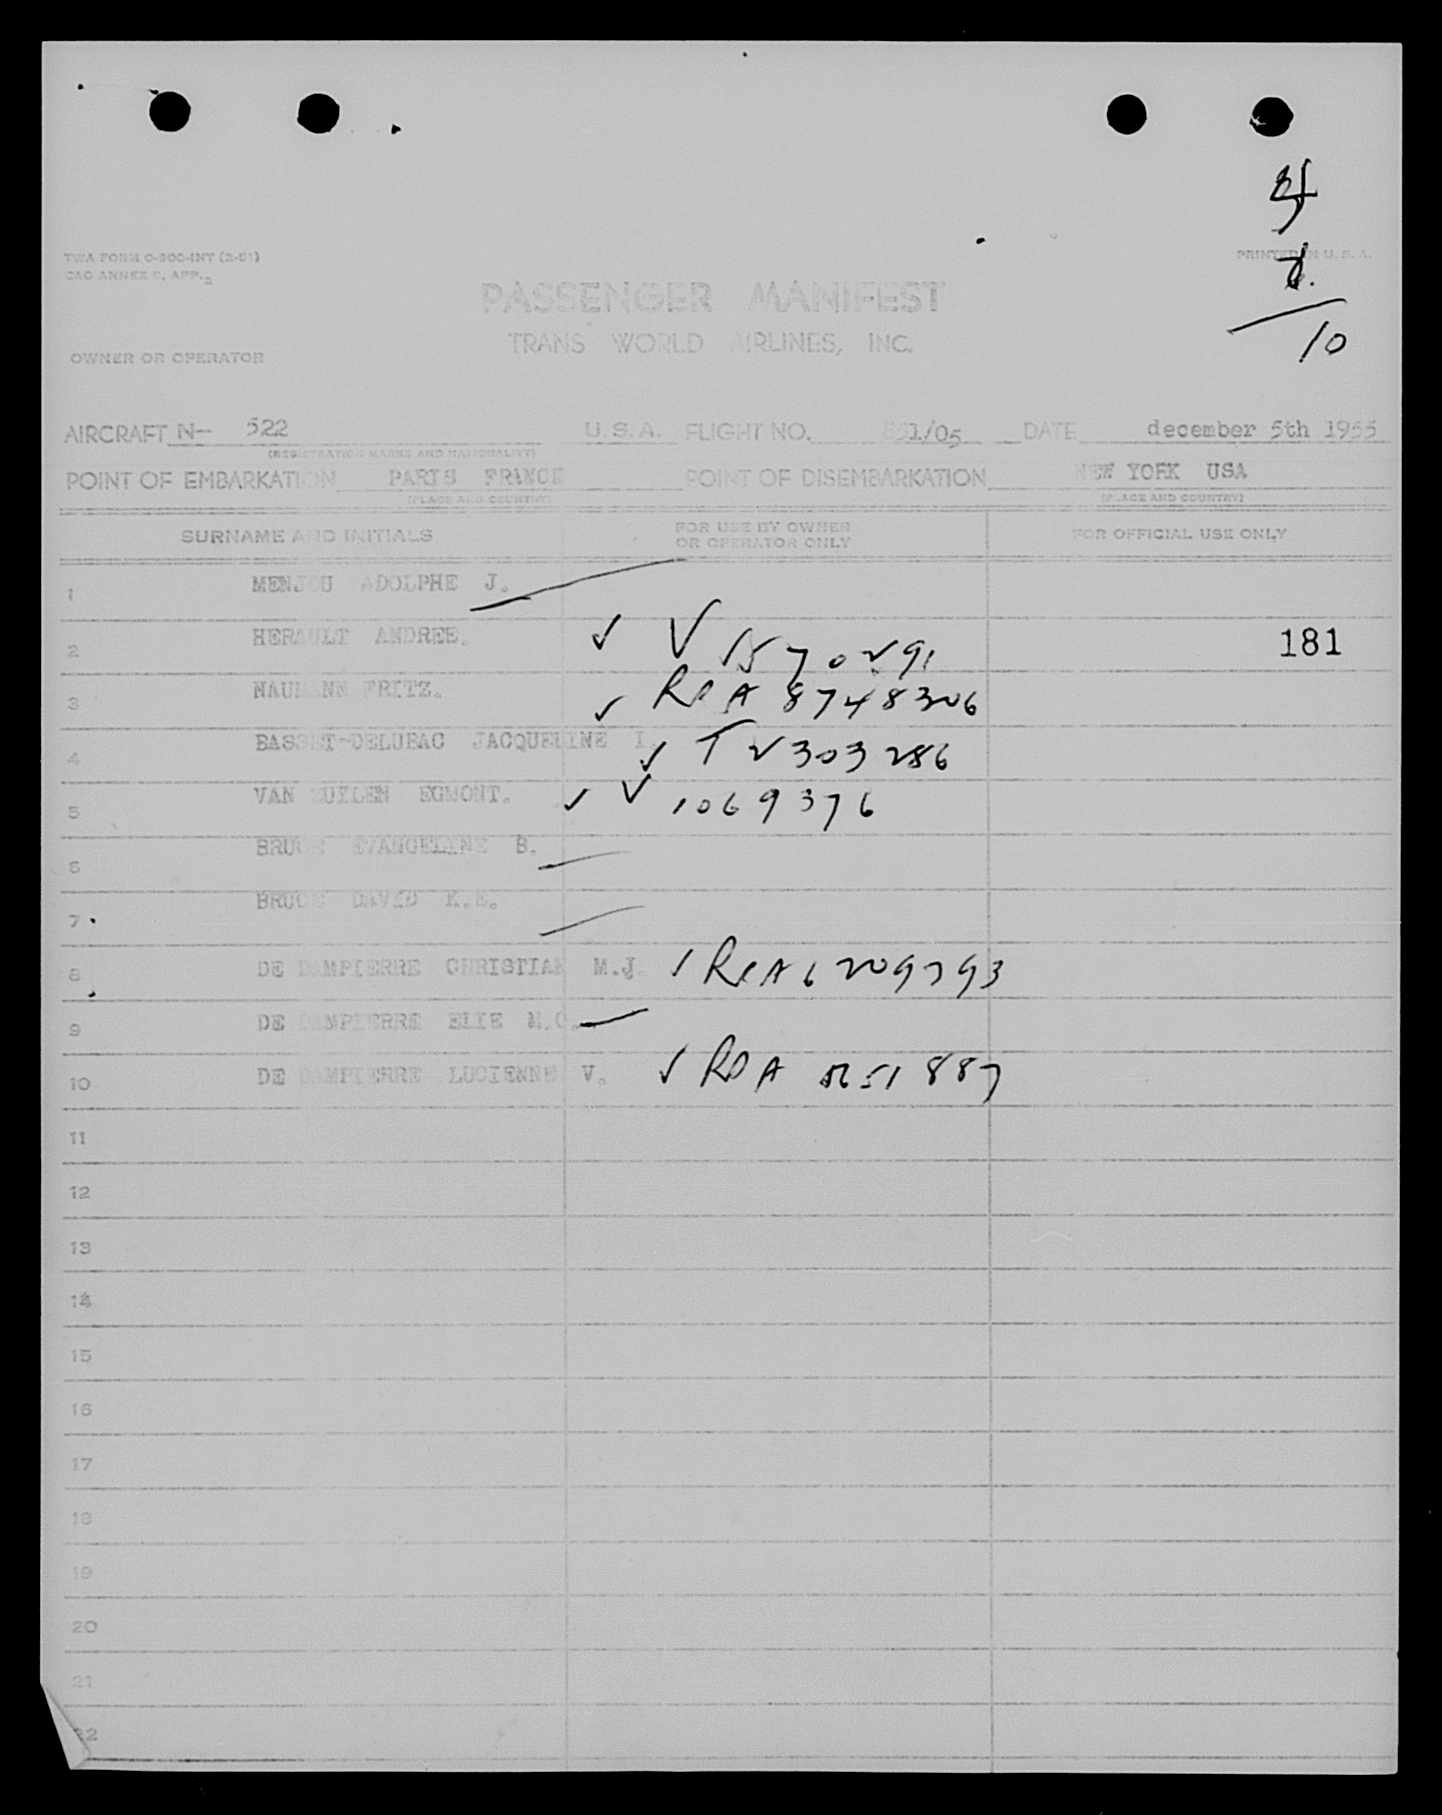 TWA FORM O-900-INT (2-51)
CAO ANNEX 9, APP. 2
PRINTED IN U. S. A.
8f
2.
10
PASSENGER MANIFEST
TRANS WORLD AIRLINES, INC.
OWNER OR OPERATOR
AIRCRAFT N- 522 U.S.A. FLIGHT NO. 1/05 DATE december 5th 1955
(REGISTRATION MARKS AND NATIONALITY)
POINT OF EMBARKATION PARIS FRANCE POINT OF DISEMBARKATION NEW YORK USA
(PLACE AND COUNTRY) (PLACE AND COUNTRY)
SURNAME AND INITIALS FOR USE BY OWNER OR OPERATOR ONLY FOR OFFICIAL USE ONLY
1 MENJOU ADOLPHE J.
2 HERAULT ANDREE. ✓ V 181
3 NAUMANN FRITZ. ✓ ROA 8748306
4 BASSET-DELUBAC JACQUELINE I. ✓ T 2303286
5 VAN ZUYLEN EGMONT. ✓ V 1069376
6 BRUCE EVANGELINE B.
7 BRUCE DAVID K.E.
8 DE DAMPIERRE CHRISTIAN M.J. ✓ ROA 6209793
9 DE DAMPIERRE ELIE M.O.
10 DE DAMPIERRE LUCIENNE V. ✓ ROA
11
12
13
14
15
16
17
18
19
20
21
22